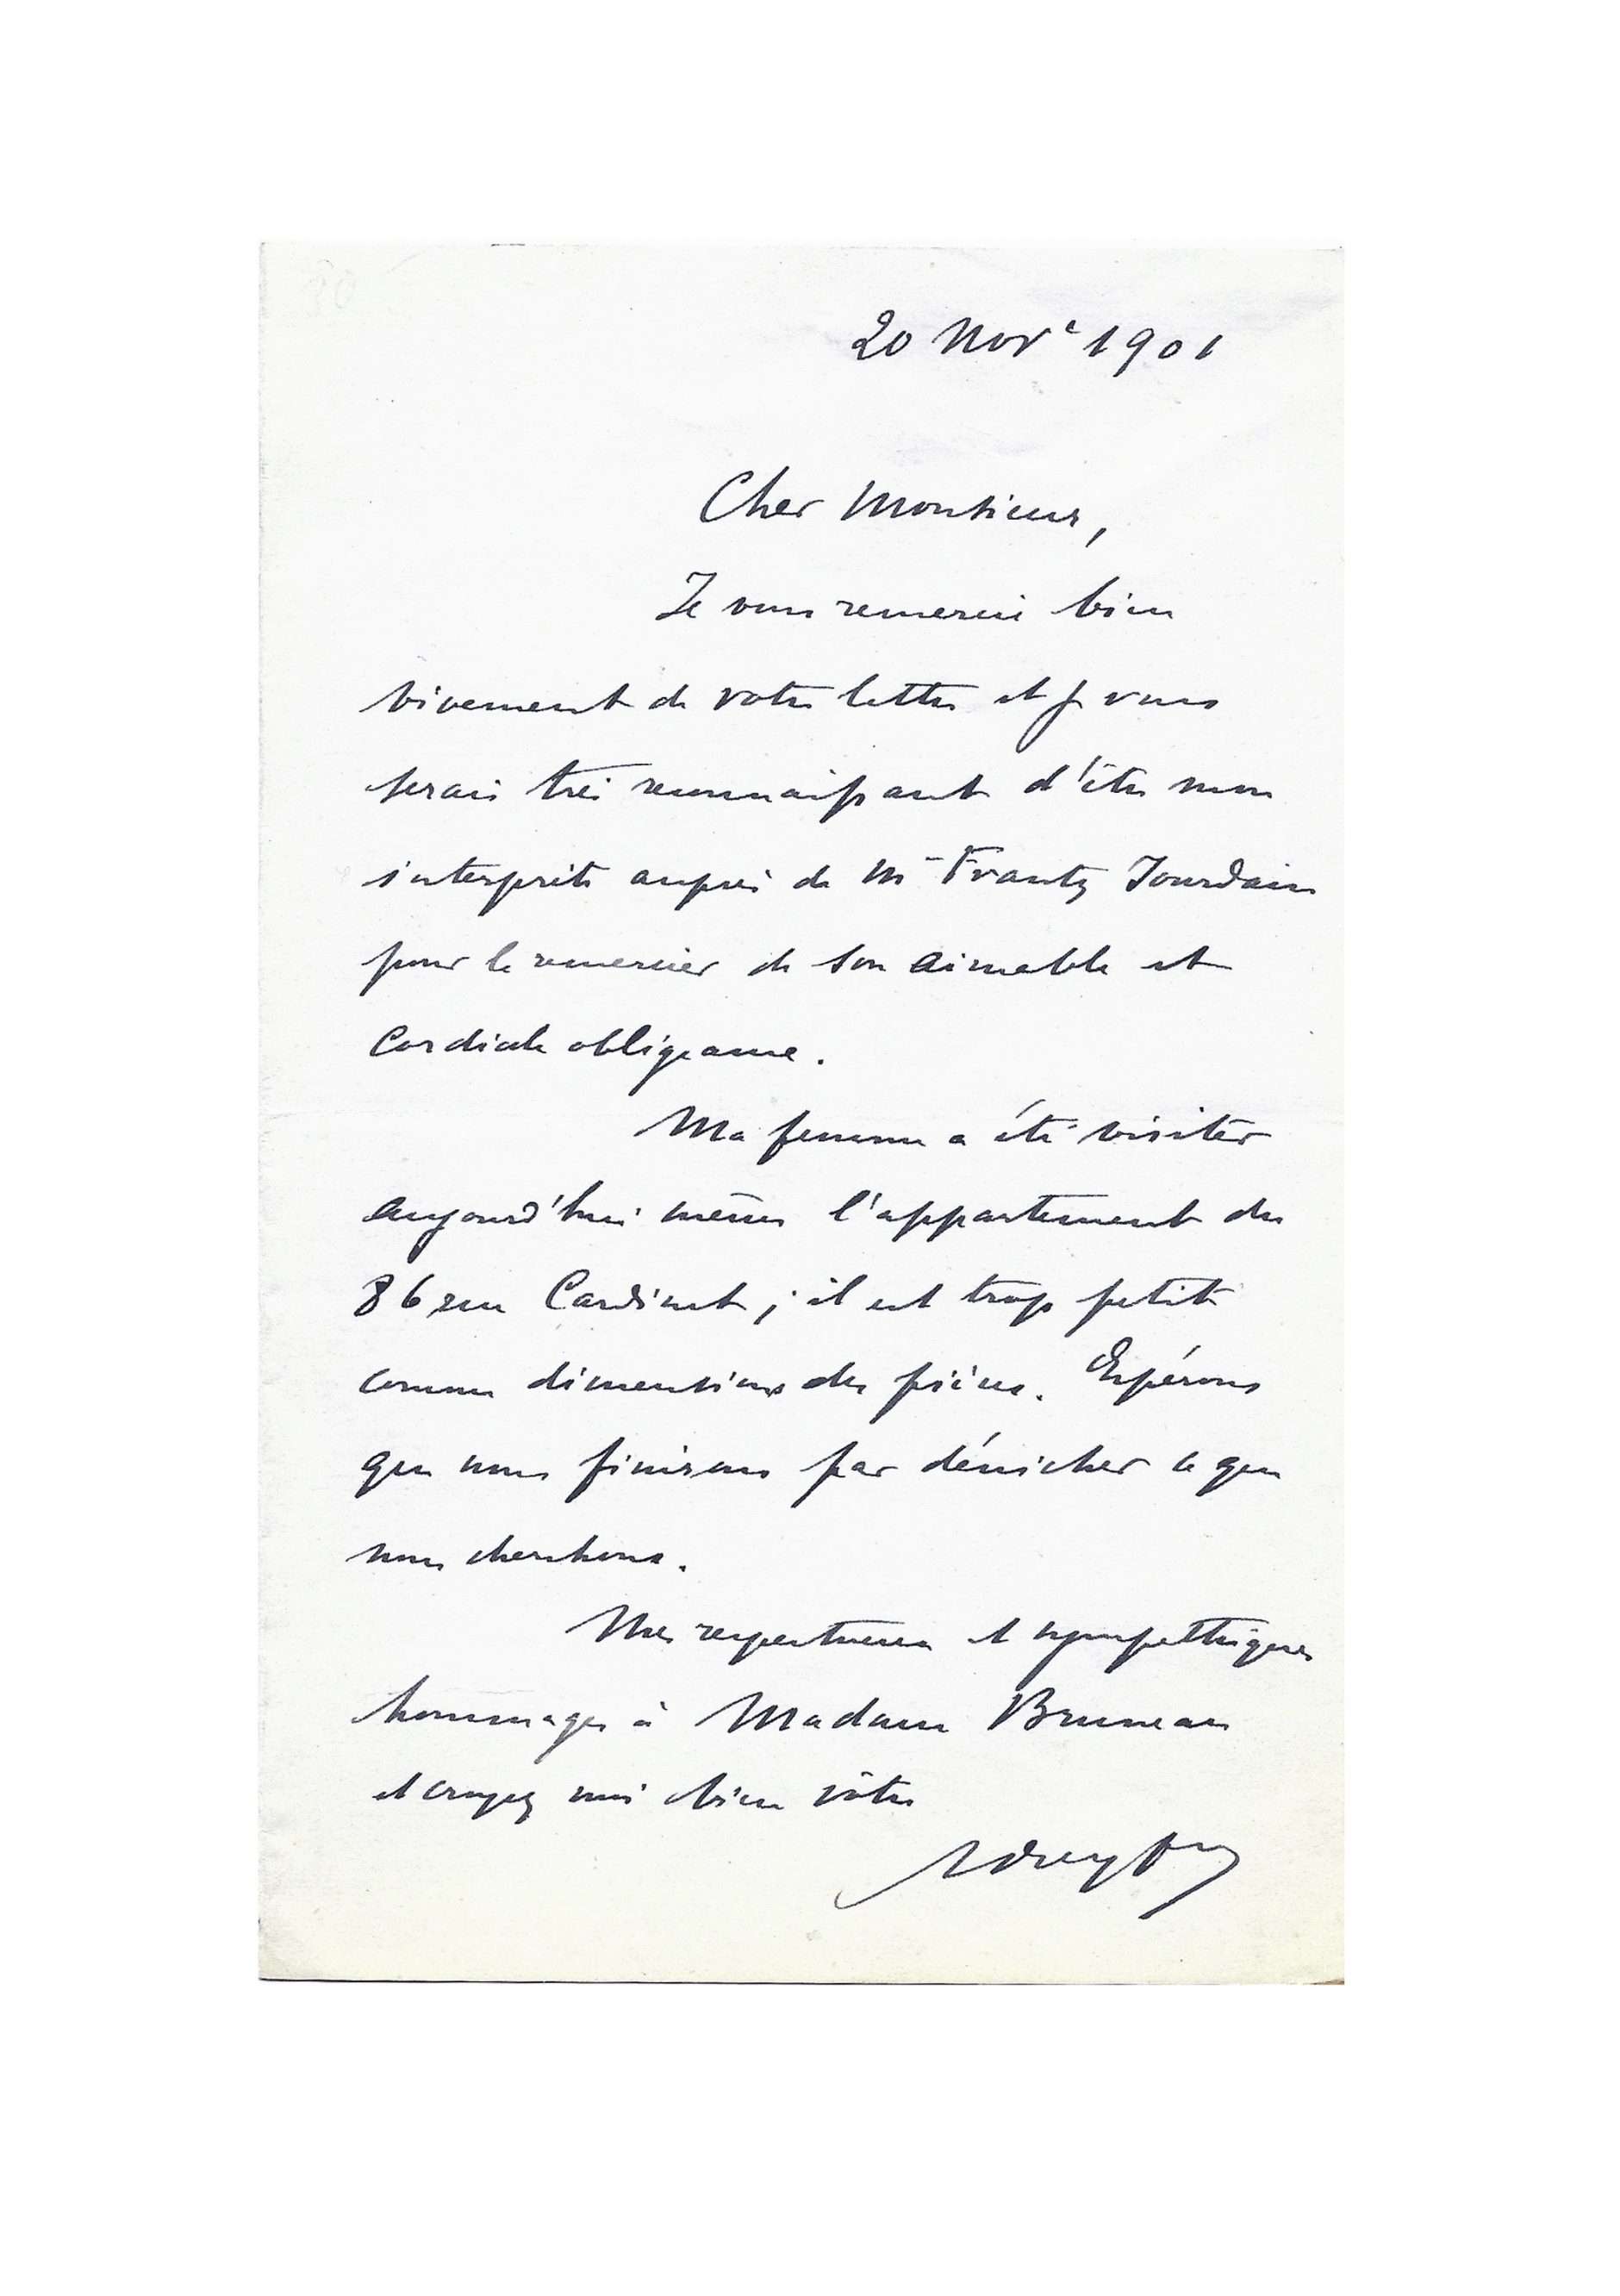 20 Nov^e 1901
Cher Monsieur,
Je vous remercie bien
vivement de votre lettre et je vous
serais très reconnaissant d'être mon
interprète auprès de M^r Frantz Jourdain
pour le remercier de son aimable et
cordiale obligeance.
Ma femme a été visiter
aujourd'hui même l'appartement du
86 rue Cardinet ; il est trop petit
comme dimensions des pièces. Espérons
que nous finirons par dénicher ce que
nous cherchons.
Mes respectueux et sympathiques
hommages à Madame Bruneau
et croyez moi bien vôtre
ADreyfus